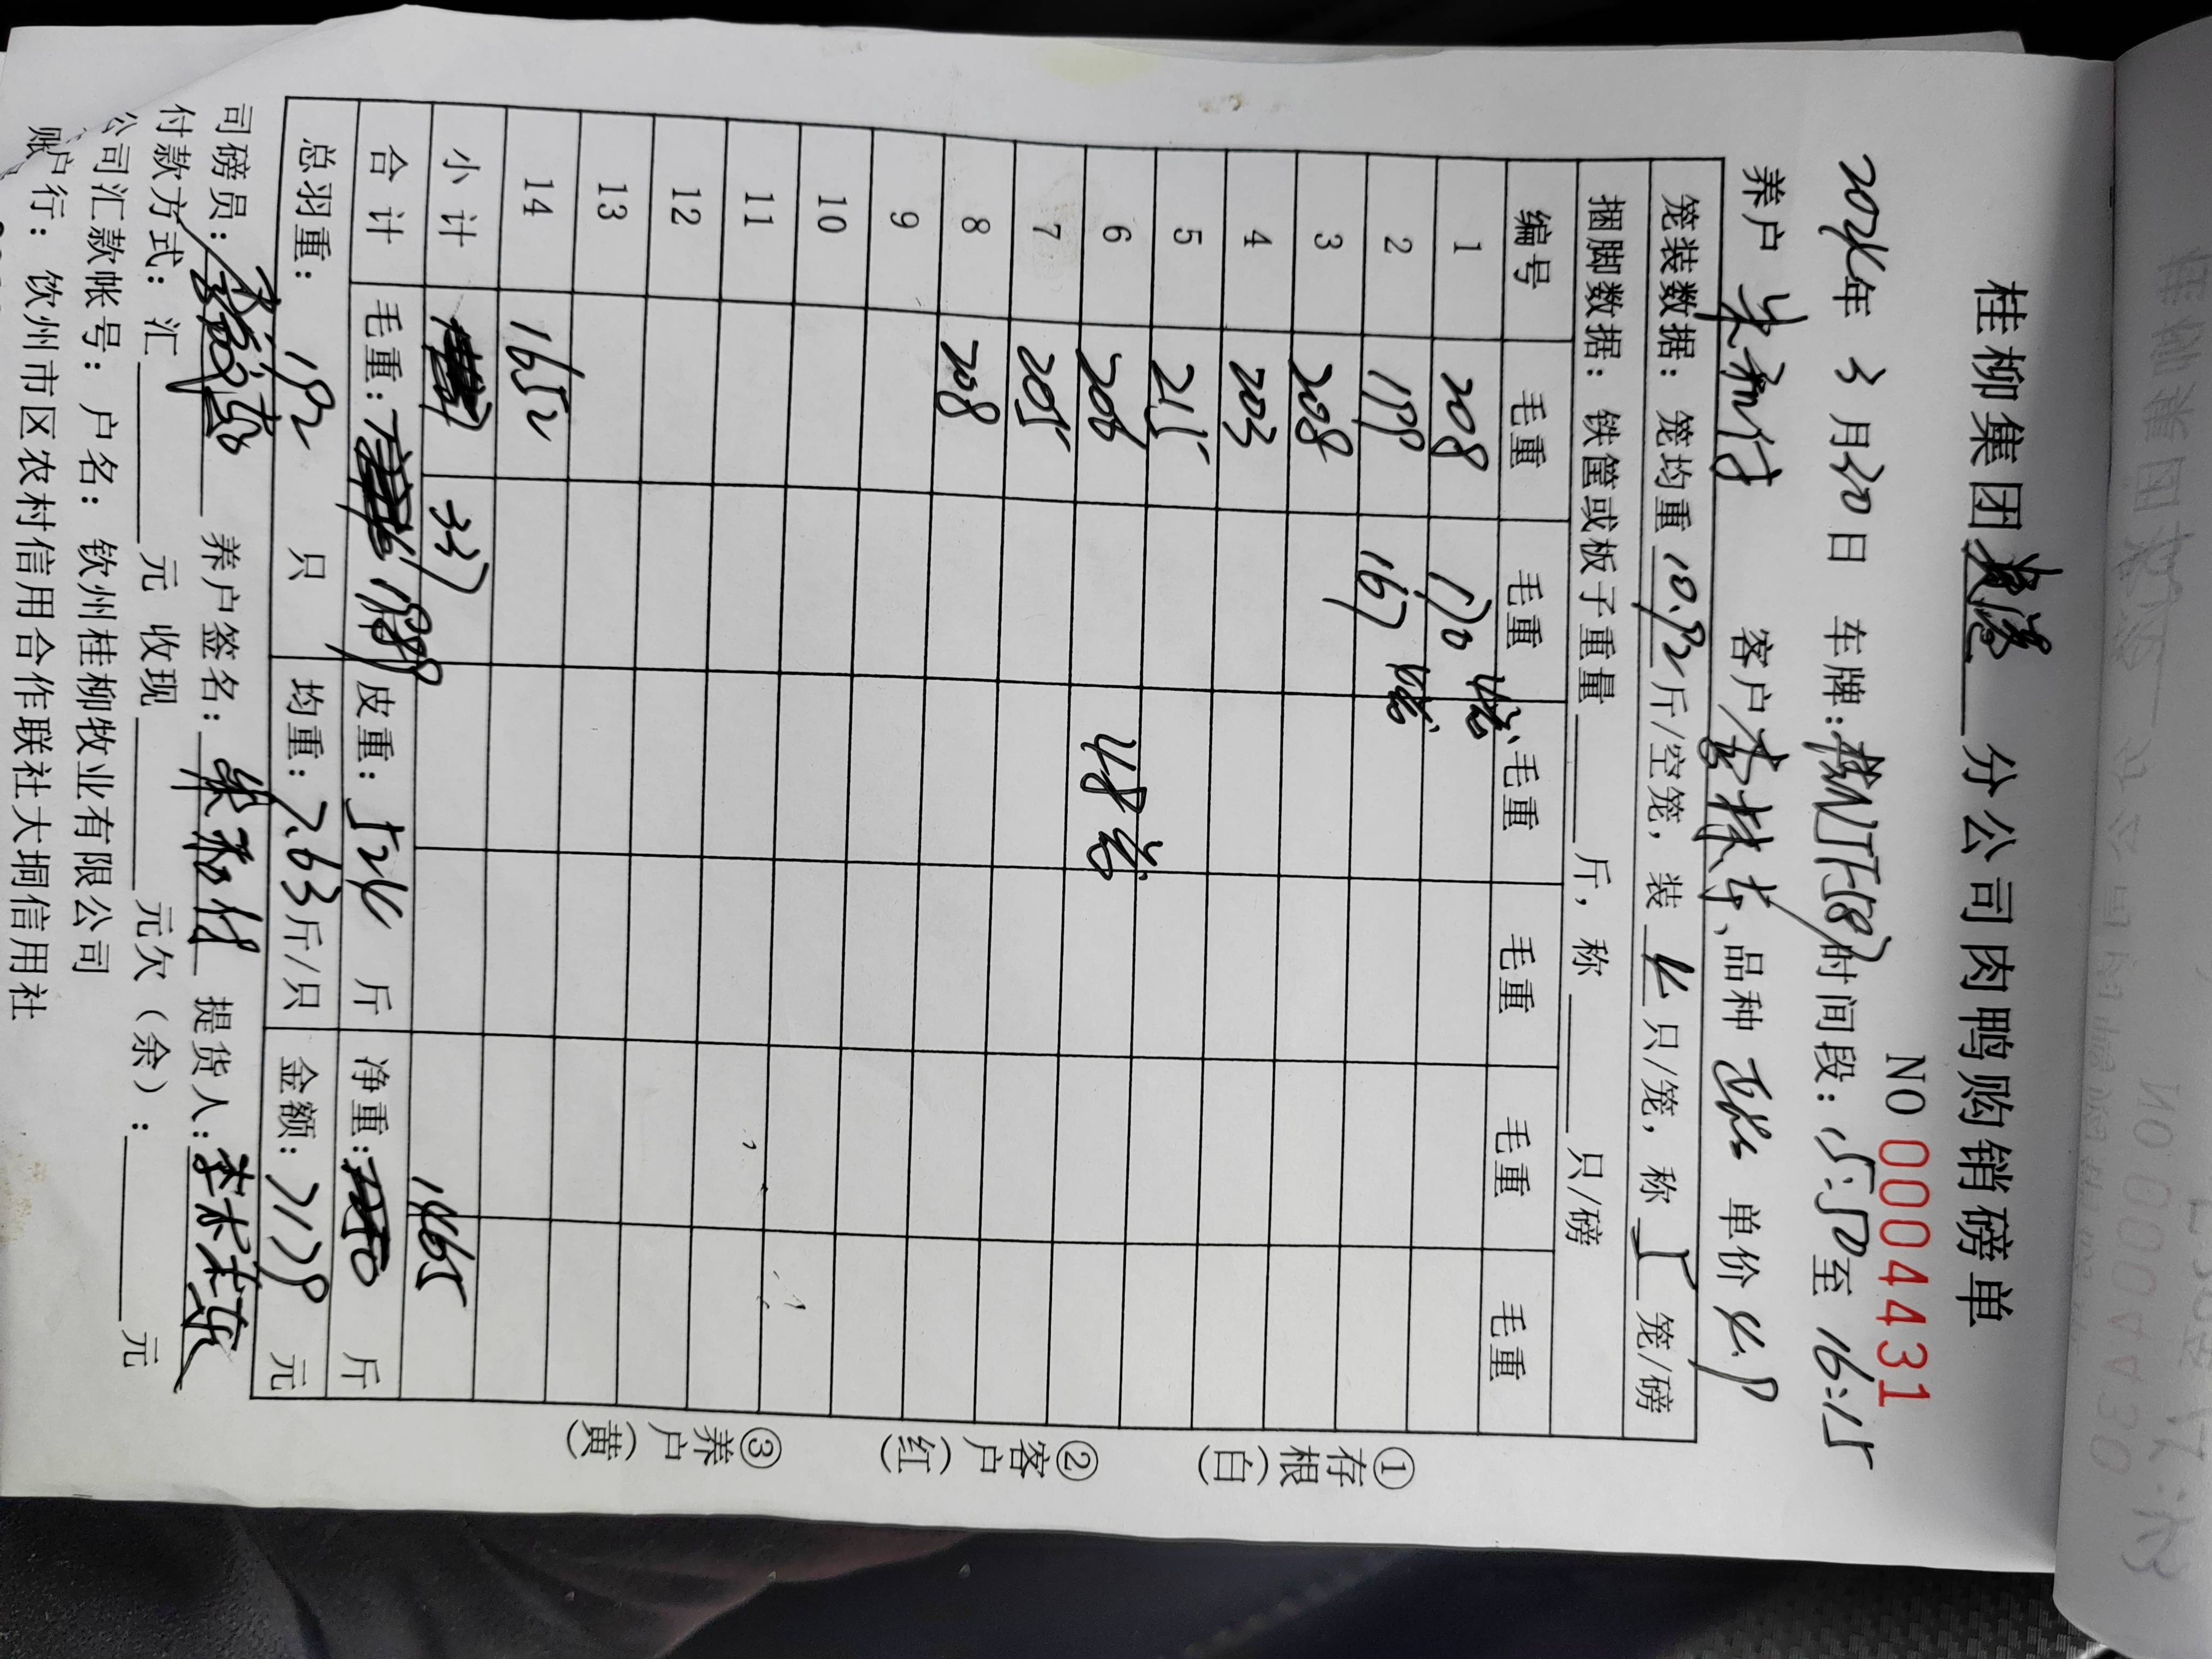 桂柳集团 分公司肉鸭购销磅单
NO 0004431
2024年 3月20日 车牌: 时间段: 15:50至 16:15
养户 朱和付 客户 李林东 品种 单价 4.9
笼装数据: 笼均重 10.92 斤/空笼, 装 4 只/笼, 称 5 笼/磅
捆脚数据: 铁筐或板子重量 斤, 称 只/磅
编号 毛重 毛重 毛重 毛重 毛重 毛重
1 208 170 4笼
2 199 167 4笼
3 208
4 203
5 215
6 206 48笼
7 205
8 208
9
10
11
12
13
14 1652
小计 337 1465
合计 毛重: 1989 皮重: 524 斤 净重: 斤
总羽重: 192 只 均重: 7.63 斤/只 金额: 7179 元
司磅员: 养户签名: 朱和付 提货人: 李林东
付款方式: 汇 元 收现 元欠(余): 元
公司汇款帐号: 户名: 钦州桂柳牧业有限公司
账户行: 钦州市区农村信用合作联社大垌信用社
①存根(白)
②客户(红)
③养户(黄)